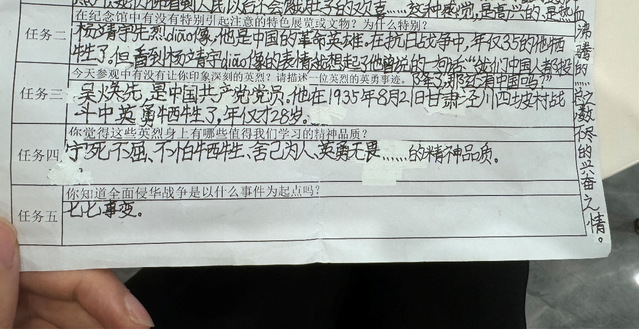 任务二
在纪念馆中有没有特别引起注意的特色展览或文物？为什么特别？
杨靖宇先烈diāo像，他是中国的革命英雄。在抗日战争中，年仅35的他牺
牲了。但看到杨靖宇diāo像的表情就想起了他曾说的一句话“我们中国人都投
降了，那还有中国吗？”
任务三
今天参观中有没有让你印象深刻的英烈？请描述一位英烈的英勇事迹。
吴焕先，是中国共产党党员。他在1935年8月21日甘肃泾川四坡村战
斗中英勇牺牲了，年仅才28岁。
任务四
你觉得这些英烈身上有哪些值得我们学习的精神品质？
宁死不屈、不怕牺牲、舍己为人、英勇无畏……的精神品质。
任务五
你知道全面侵华战争是以什么事件为起点吗？
七七事变。
满清的
数不尽的兴奋之情。